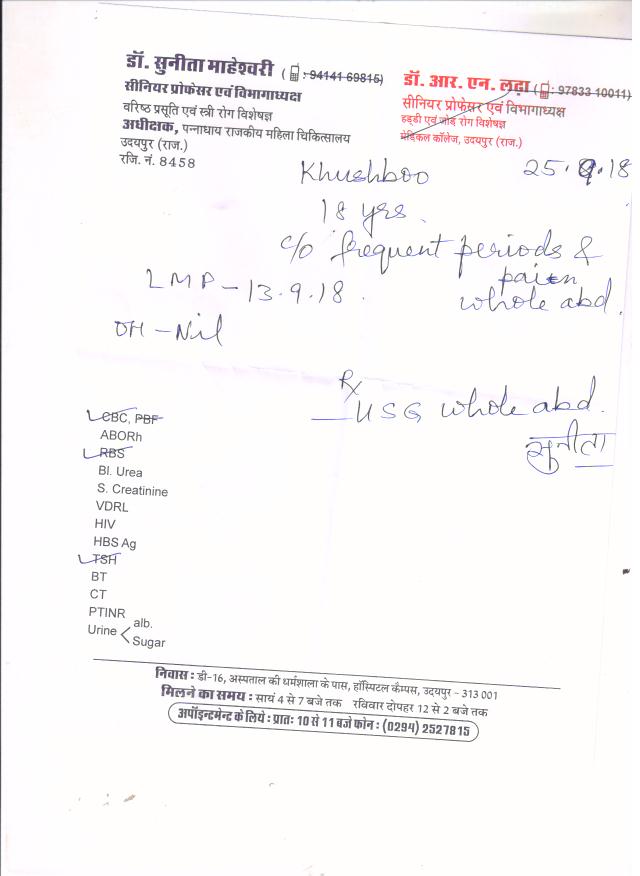 डॉ. सुनीता माहेश्वरी ( : 94141 69815)
सीनियर प्रोफेसर एवं विभागाध्यक्ष
वरिष्ठ प्रसूति एवं स्त्री रोग विशेषज्ञ
अधीक्षक, पन्नाधाय राजकीय महिला चिकित्सालय
उदयपुर (राज.)
रजि. नं. 8458
डॉ. आर. एन. लढ़ा ( : 97833 10011)
सीनियर प्रोफेसर एवं विभागाध्यक्ष
हड्डी एवं जोड़ रोग विशेषज्ञ
मेडिकल कॉलेज, उदयपुर (राज.)
Khushboo 25.9.18
18 yrs.
c/o frequent periods &
pain
LMP - 13.9.18. whole abd.
OH - Nil
Rx
USG whole abd.
सुनीता
CBC, PBF
ABORh
RBS
Bl. Urea
S. Creatinine
VDRL
HIV
HBS Ag
TSH
BT
CT
PTINR
Urine < alb.
Sugar
निवास : डी-16, अस्पताल की धर्मशाला के पास, हॉस्पिटल कैम्पस, उदयपुर - 313 001
मिलने का समय : सायं 4 से 7 बजे तक रविवार दोपहर 12 से 2 बजे तक
अपॉइन्टमेन्ट के लिये : प्रातः 10 से 11 बजे फोन : (0294) 2527815